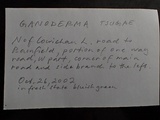 GANODERMA TSUGAE
N of Lewiston L, road to
Bomfield, portion of one way
road, 10 part, corner of main
road and side branch to the left.
Oct. 26, 2002
in fresh state bluish green